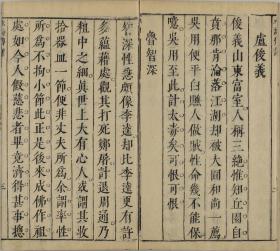 盧俊義
俊義山東富室人稱三絶惟知丘園自
貴那肯淪落江湖却被大圓和尚一
吳用便平白賺人做賊性命幾不能保
噫吳用至此計太毒矣可恨可恨
魯智深
智深性急頗像李逵却比李逵更有許
多蘊藉處觀其打死鄭屠計退周通乃
粗中之細與世上大有心人或謂其收
拾器皿一節便非丈夫所為余謂率性
所為不拘小節此正是後來成佛作祖
處如今人假慈悲者畢竟濟得甚事揔